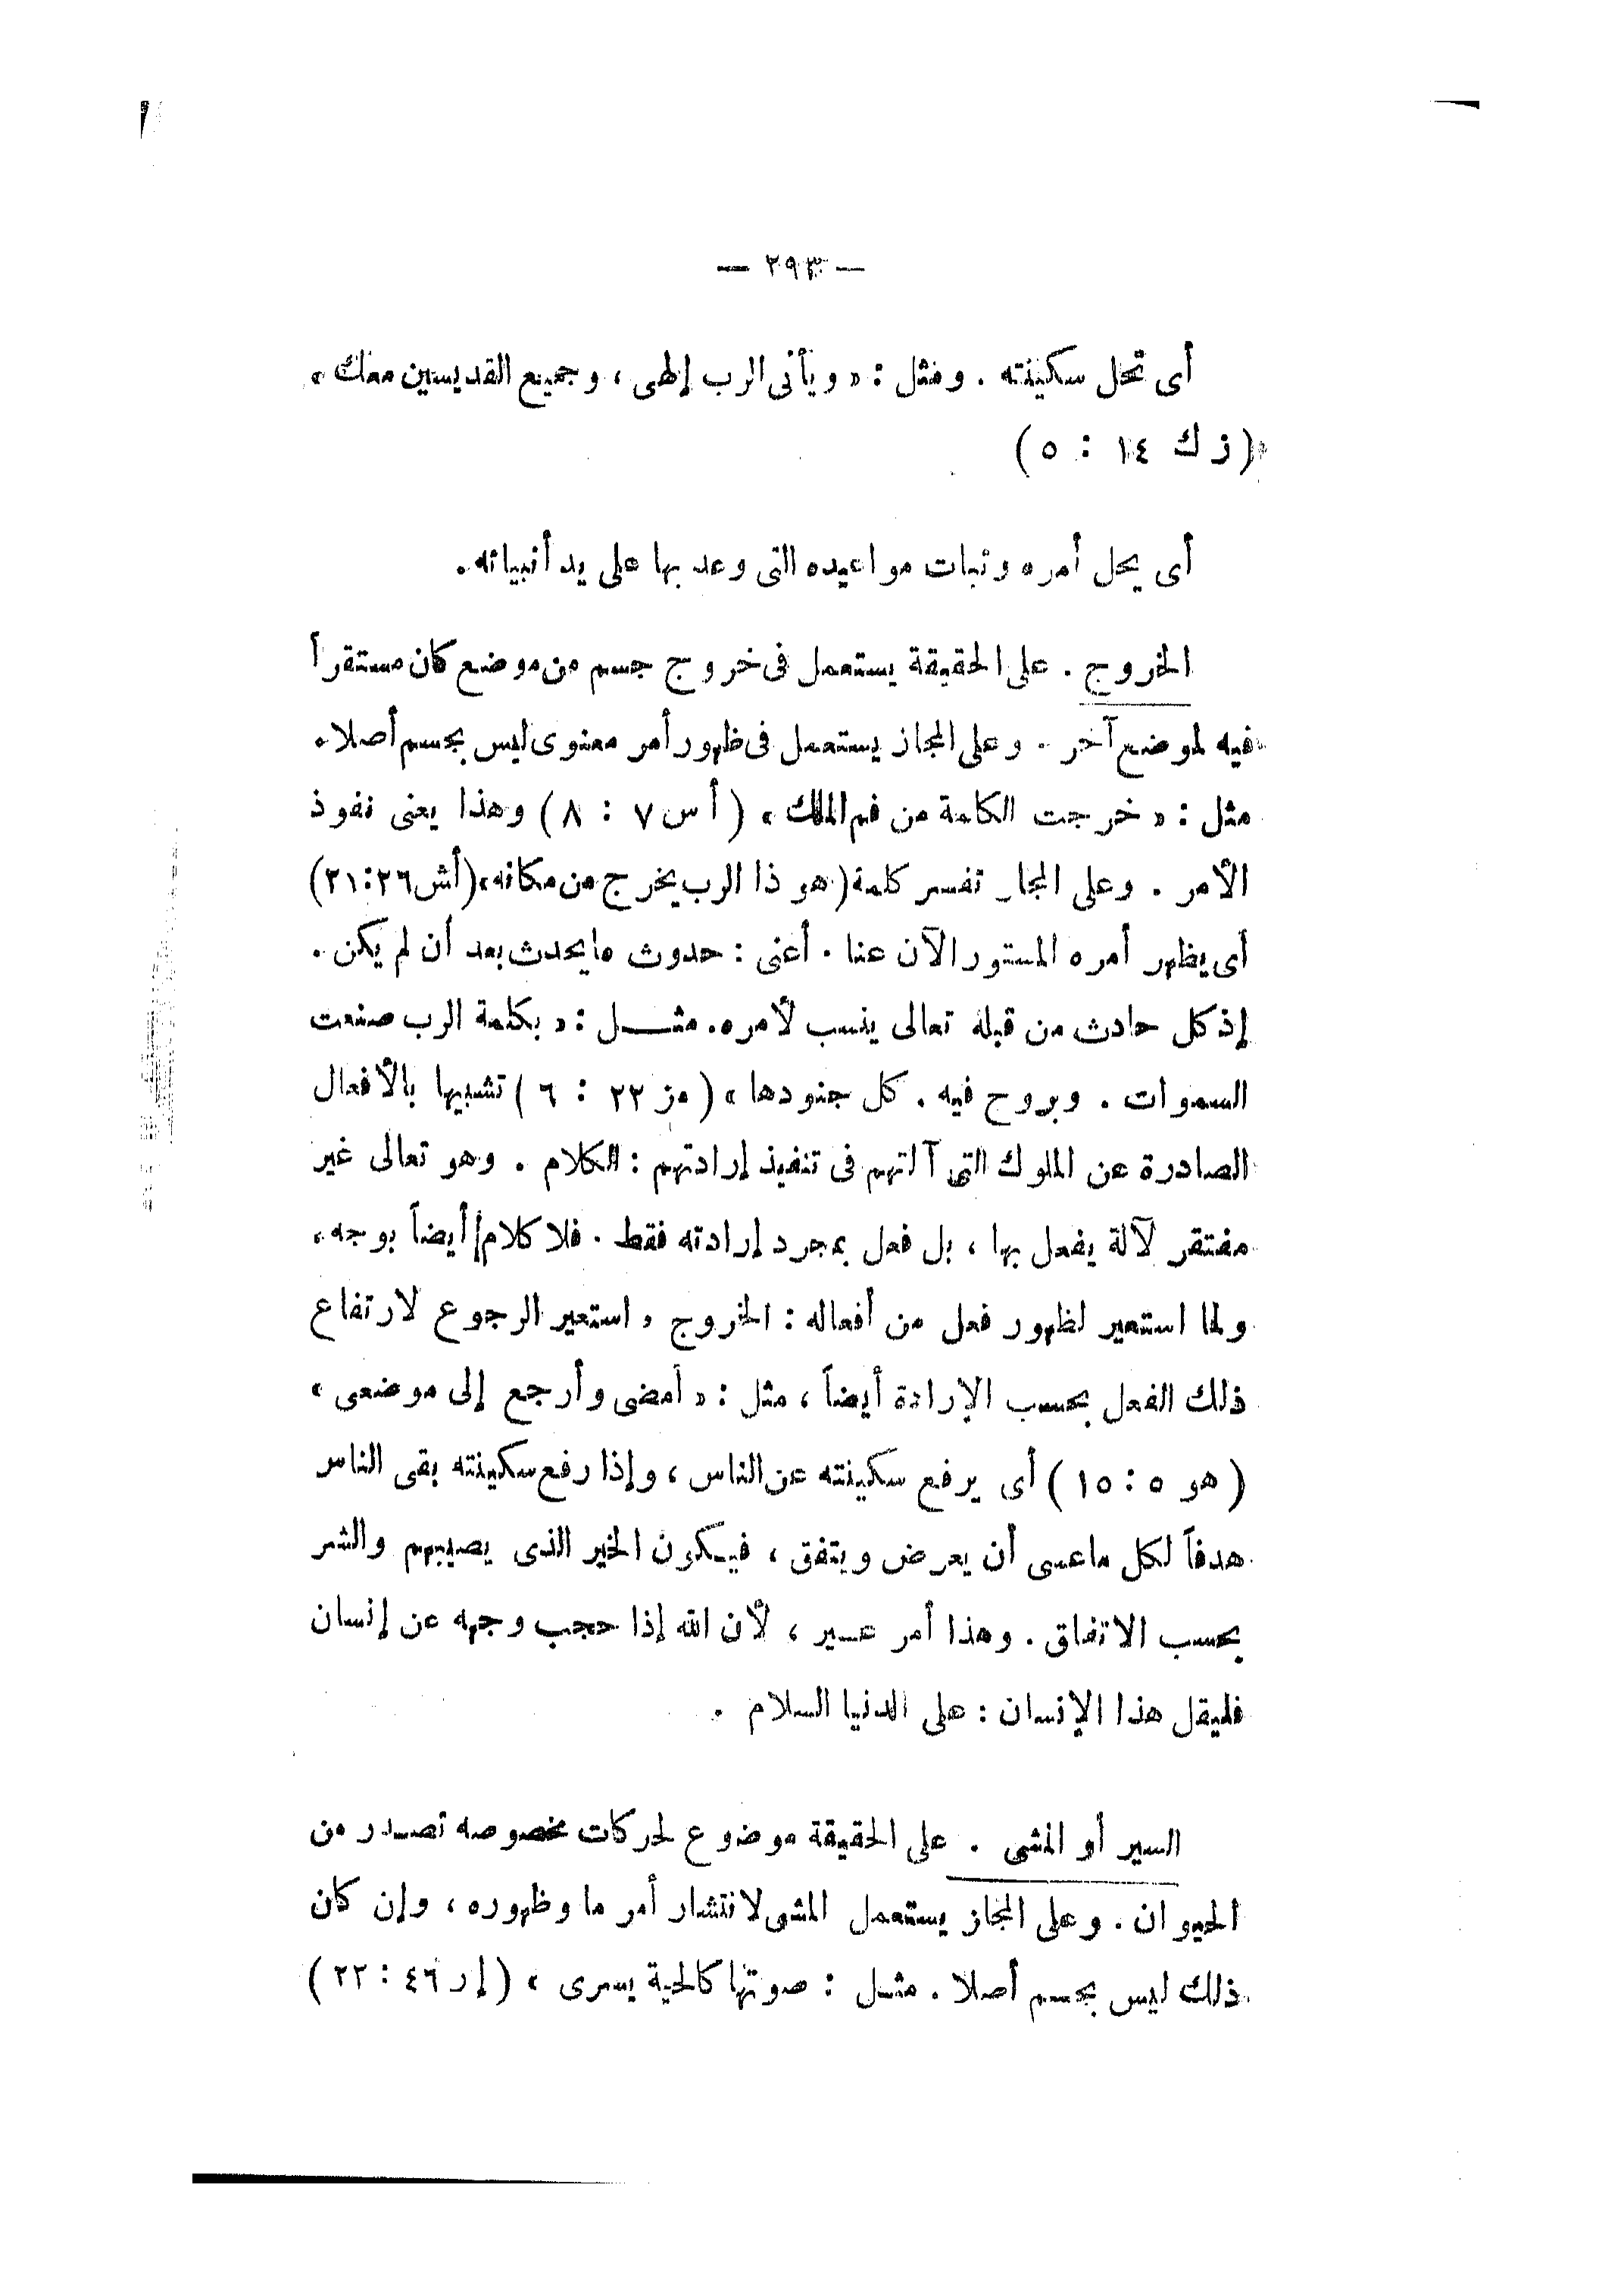 — ٢٩٣ —
أى تحل سكينته . ومثل : « ويأتى الرب إلهى ، وجميع القديسين معك »
(زك ١٤ : ٥)
أى يحل أمره وثبات مواعيده التى وعد بها على يد أنبيائه .
الخروج . على الحقيقة يستعمل فى خروج جسم من موضع كان مستقراً
فيه لموضع آخر . وعلى المجاز يستعمل فى ظهور أمر معنوى ليس بجسم أصلا .
مثل : « خرجت الكلمة من فم الملك » ( أ س ٧ : ٨ ) وهذا يعنى نفوذ
الأمر . وعلى المجاز تفسر كلمة ( هو ذا الرب يخرج من مكانه » (أش ٢٦ : ٢١)
أى يظهر أمره المستور الآن عنا . أعنى : حدوث ما يحدث بعد أن لم يكن .
إذ كل حادث من قبله تعالى ينسب لأمره . مثــل : « بكلمة الرب صنعت
السموات . وبروح فيه . كل جنودها » ( مز ٢٢ : ٦ ) تشبيها بالأفعال
الصادرة عن الملوك التى آلتهم فى تنفيذ إرادتهم : الكلام . وهو تعالى غير
مفتقر لآلة يفعل بها ، بل فعل بمجرد إرادته فقط . فلا كلام أيضاً بوجه ،
ولما استعير لظهور فعل من أفعاله : الخروج ، استعير الرجوع لارتفاع
ذلك الفعل بحسب الإرادة أيضاً ، مثل : « أمضى وأرجع إلى موضعى »
( هو ٥ : ١٥ ) أى يرفع سكينته عن الناس ، وإذا رفع سكينته بقى الناس
هدفاً لكل ما عسى أن يعرض ويتفق ، فيـكون الخير الذى يصيبهم والشر
بحسب الاتفاق . وهذا أمر عسير ، لأن الله إذا حجب وجهه عن إنسان
فليقل هذا الإنسان : على الدنيا السلام .
السير أو المشى . على الحقيقة موضوع لحركات مخصوصه تصـدر من
الحيوان . وعلى المجاز يستعمل المشى لانتشار أمر ما وظهوره ، وإن كان
ذلك ليس بجسم أصلا . مثـل : صوتها كالحية يسرى » ( إر ٤٦ : ٢٢ )